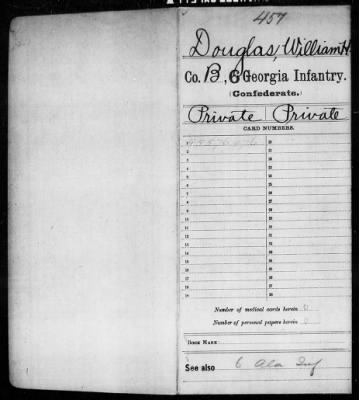 457
Douglas, William H
Co. B, 6 Georgia Infantry.
(Confederate.)
Private Private
CARD NUMBERS.
1 20
2 21
3 22
4 23
5 24
6 25
7 26
8 27
9 28
10 29
11 30
12 31
13 32
14 33
15 34
16 35
17 36
18 37
19 38
Number of medical cards herein 0
Number of personal papers herein 0
BOOK MARK:
See also 6 Ala Inf